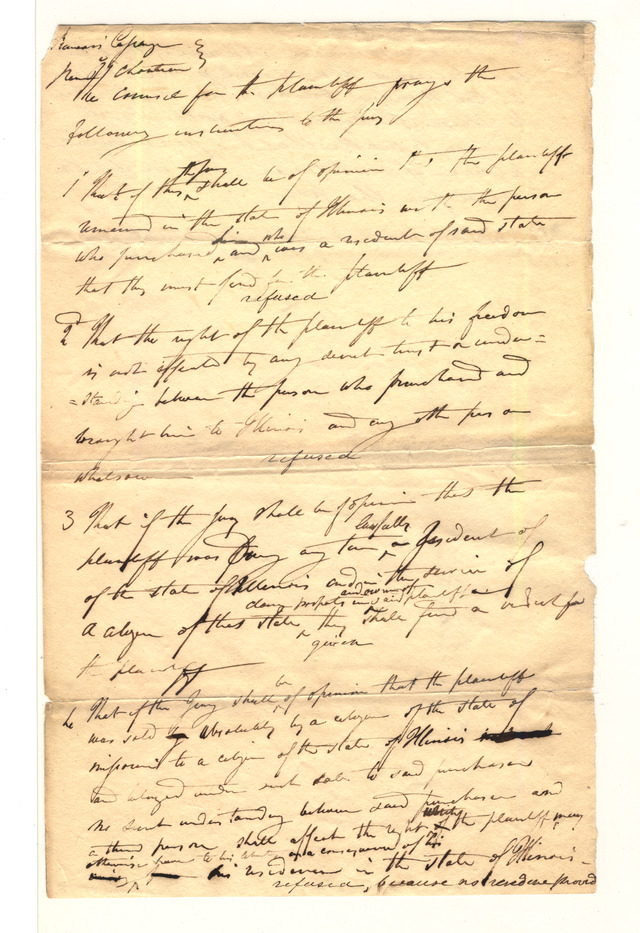 Francois Lagrange }
Pierre Chouteau }
The counsel for the plaintiff prays the
following instructions to the jury
1st That if the jury shall be of opinion that the plaintiff
remained in the state of Illinois with the person
who purchased him and who was a resident of said state
that they must find for the plaintiff
refused
2d That the right of the plaintiff to his freedom
is not affected by any secret trust or under=
=standing between the person who purchased and
brought him to Illinois and any other person
whatsoever
refused
3 That if the Jury shall be of opinion that the
plaintiff was during any time lawfully a resident of
of the state of Illinois and in the service of
a citizen of that state and owning said plaintiff they shall find a verdict for
the plaintiff
given
4 That if the Jury shall be of opinion that the plaintiff
was sold absolutely by a citizen of the state of
missouri to a citizen of the state of Illinois
and delivered under such sale to said purchaser
no secret understanding between said purchaser and
a third person shall affect the right of the plaintiff
as a consequence of his
residence in the state of Illinois
refused, because no residence proved